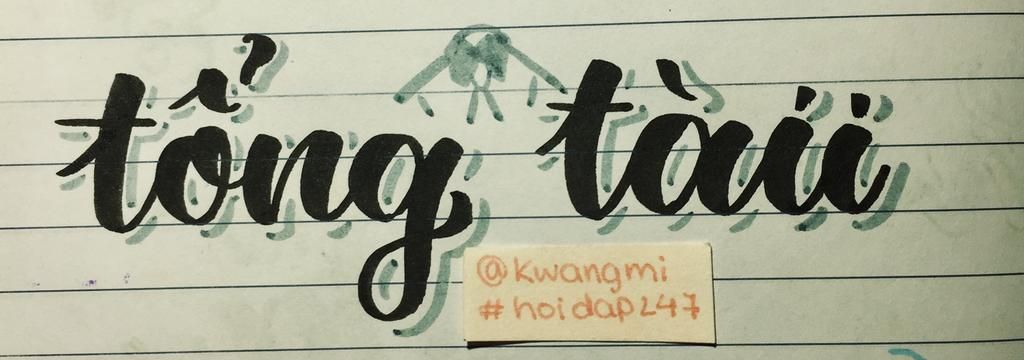 tổng tàii
@kwangmi
#hoidap247